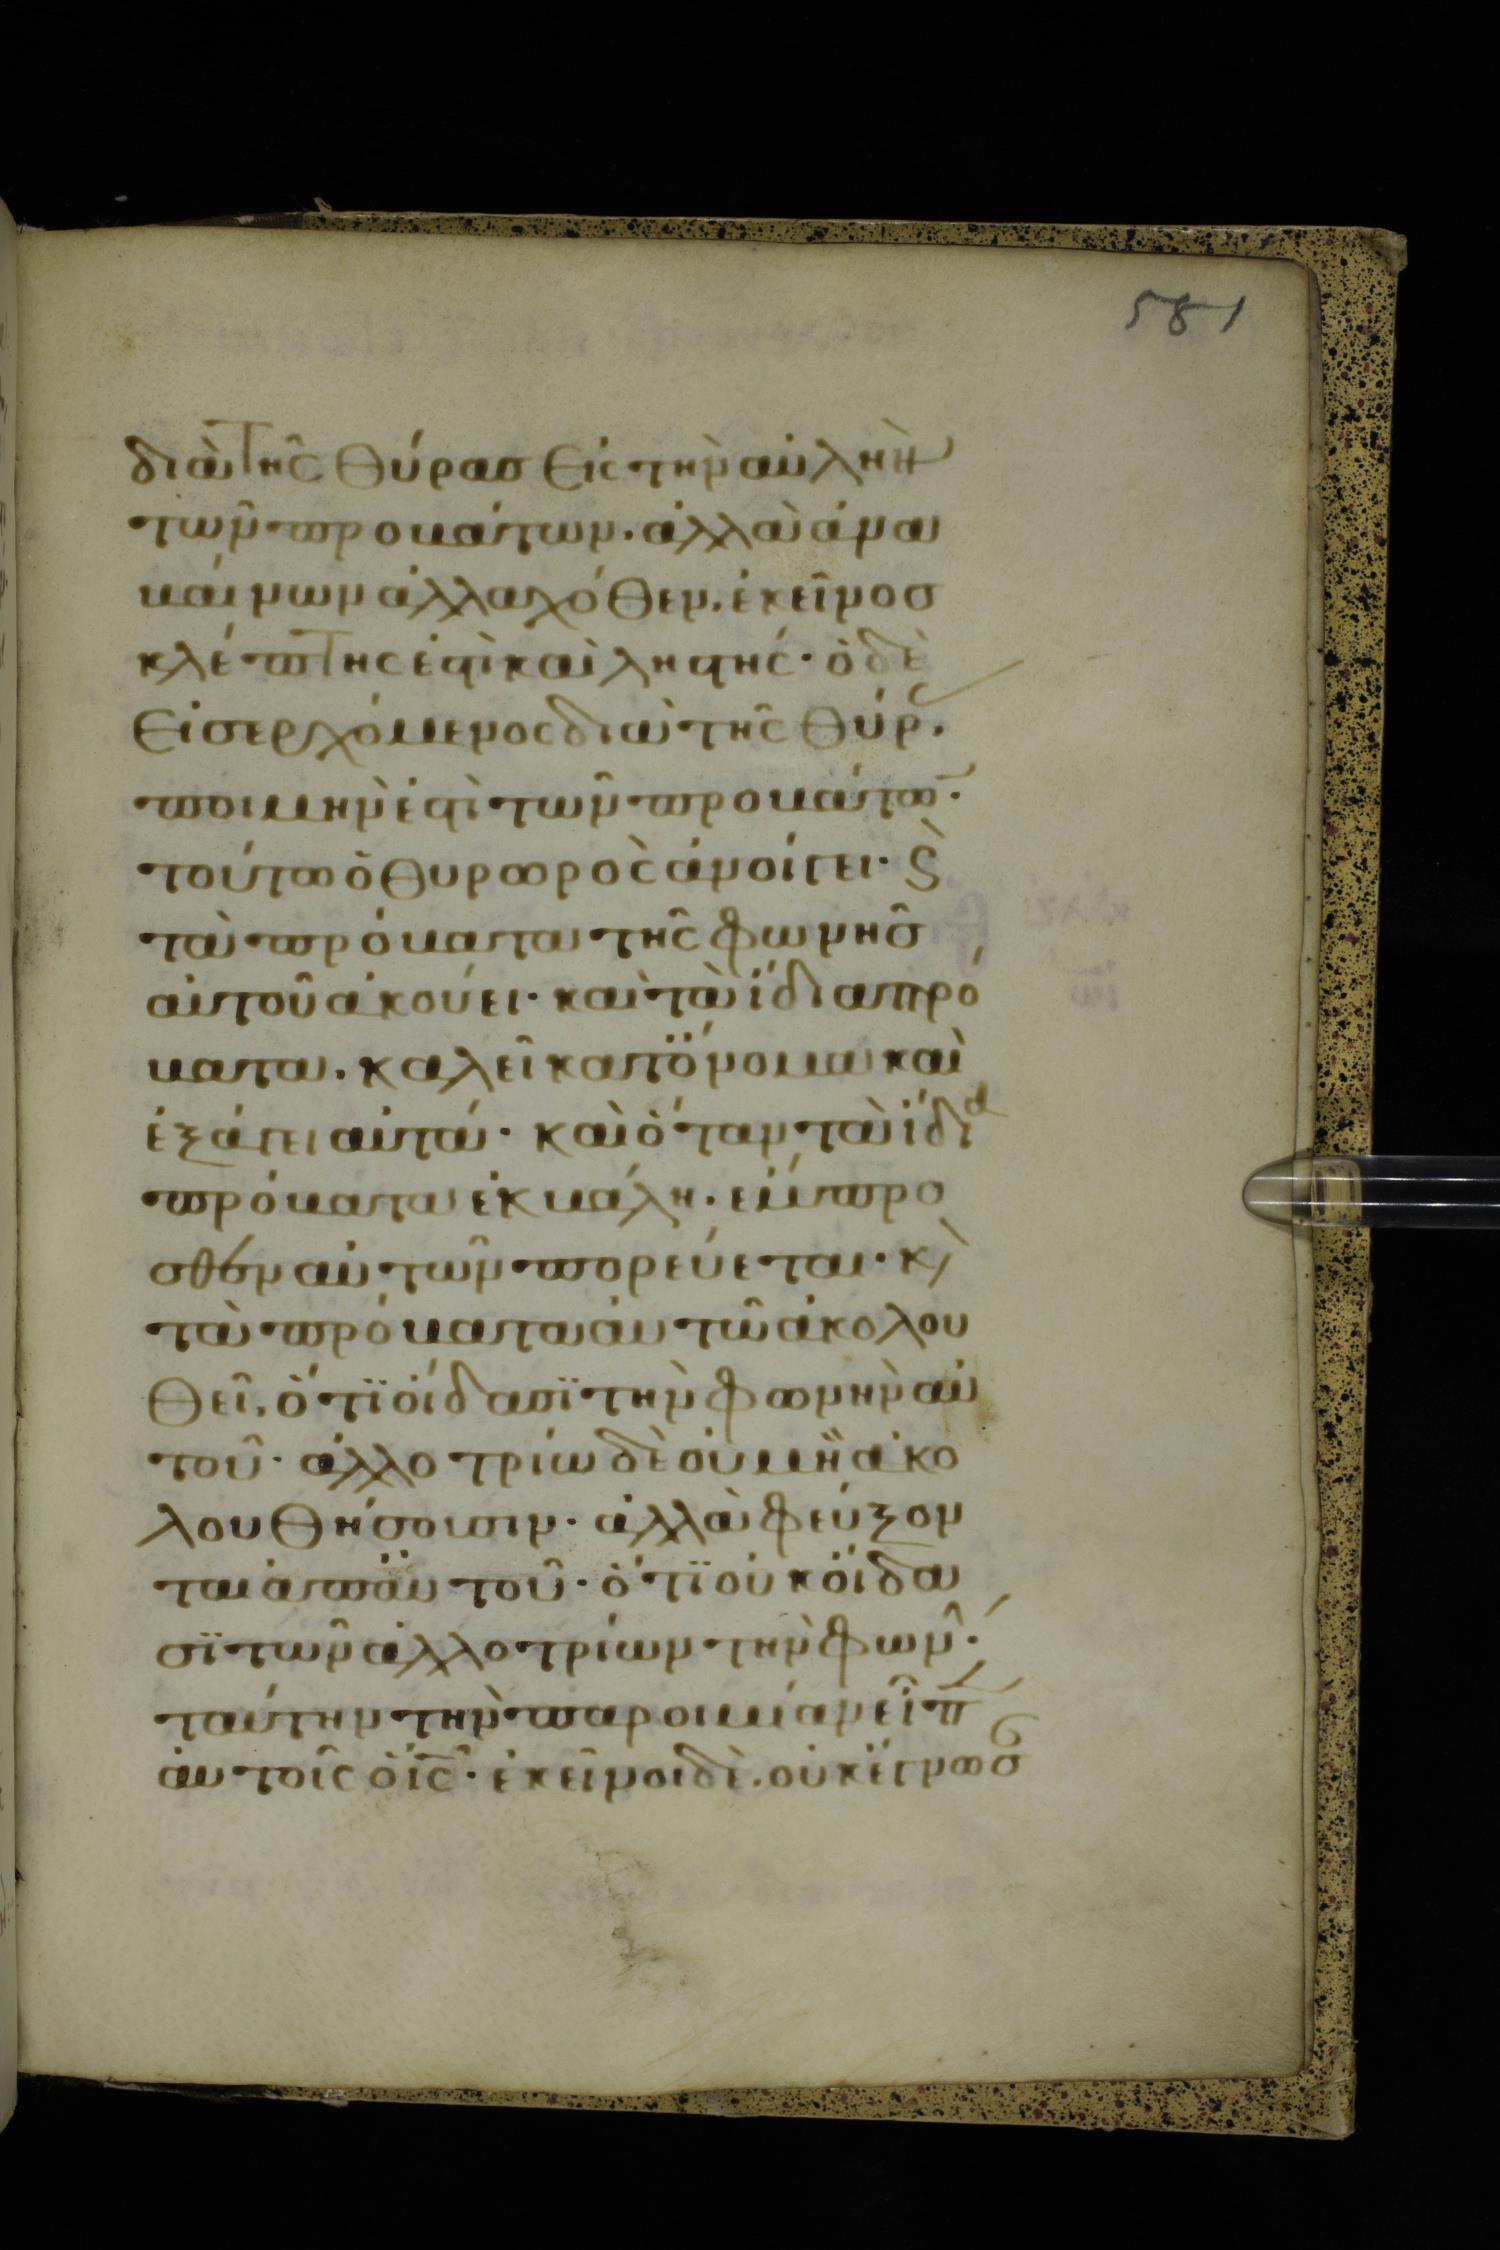 581
διὰ τῆς θύρασ εἰς τὴν αὐλὴν
τῶν προβάτων. ἀλλὰ ἀνα
βαίνων ἀλλαχόθεν, ἐκεῖνοσ
κλέπτης ἐστὶ καὶ ληστής· ὁ δὲ
εἰσερχόμενος διὰ τῆς θύρ.
ποιμήν ἐστὶ τῶν προβάτω·
τούτω ὁ θυρωρὸς ἀνοίγει· Ϛ
τὰ πρόβατα τῆς φωνῆσ
αὐτοῦ ἀκούει· καὶ τὰ ἴδια πρό
βατα. καλεῖ κατ ὄνομα καὶ
ἐξάγει αὐτά· καὶ ὅταν τὰ ἴδια
πρόβατα ἐκβάλη. ἔμπρο
σθεν αὐτῶν πορεύεται· κ
τὰ πρόβατα αὐτῶ ἀκολου
θεῖ, ὅτϊ οἴδασϊ τὴν φωνὴν αὐ
τοῦ· ἀλλοτρίω δὲ οὐ μὴ ἀκο
λουθήσουσιν· ἀλλὰ φεύξον
ται ἀπ αὐτοῦ· ὅτϊ οὐκ οἴδα
σϊ τῶν ἀλλοτρίων τὴν φων·
ταύτην τὴν παροιμίαν εἶπ
αὐτοῖς ὁ ἰς· ἐκεῖνοι δὲ. οὐκ ἔγνωσ